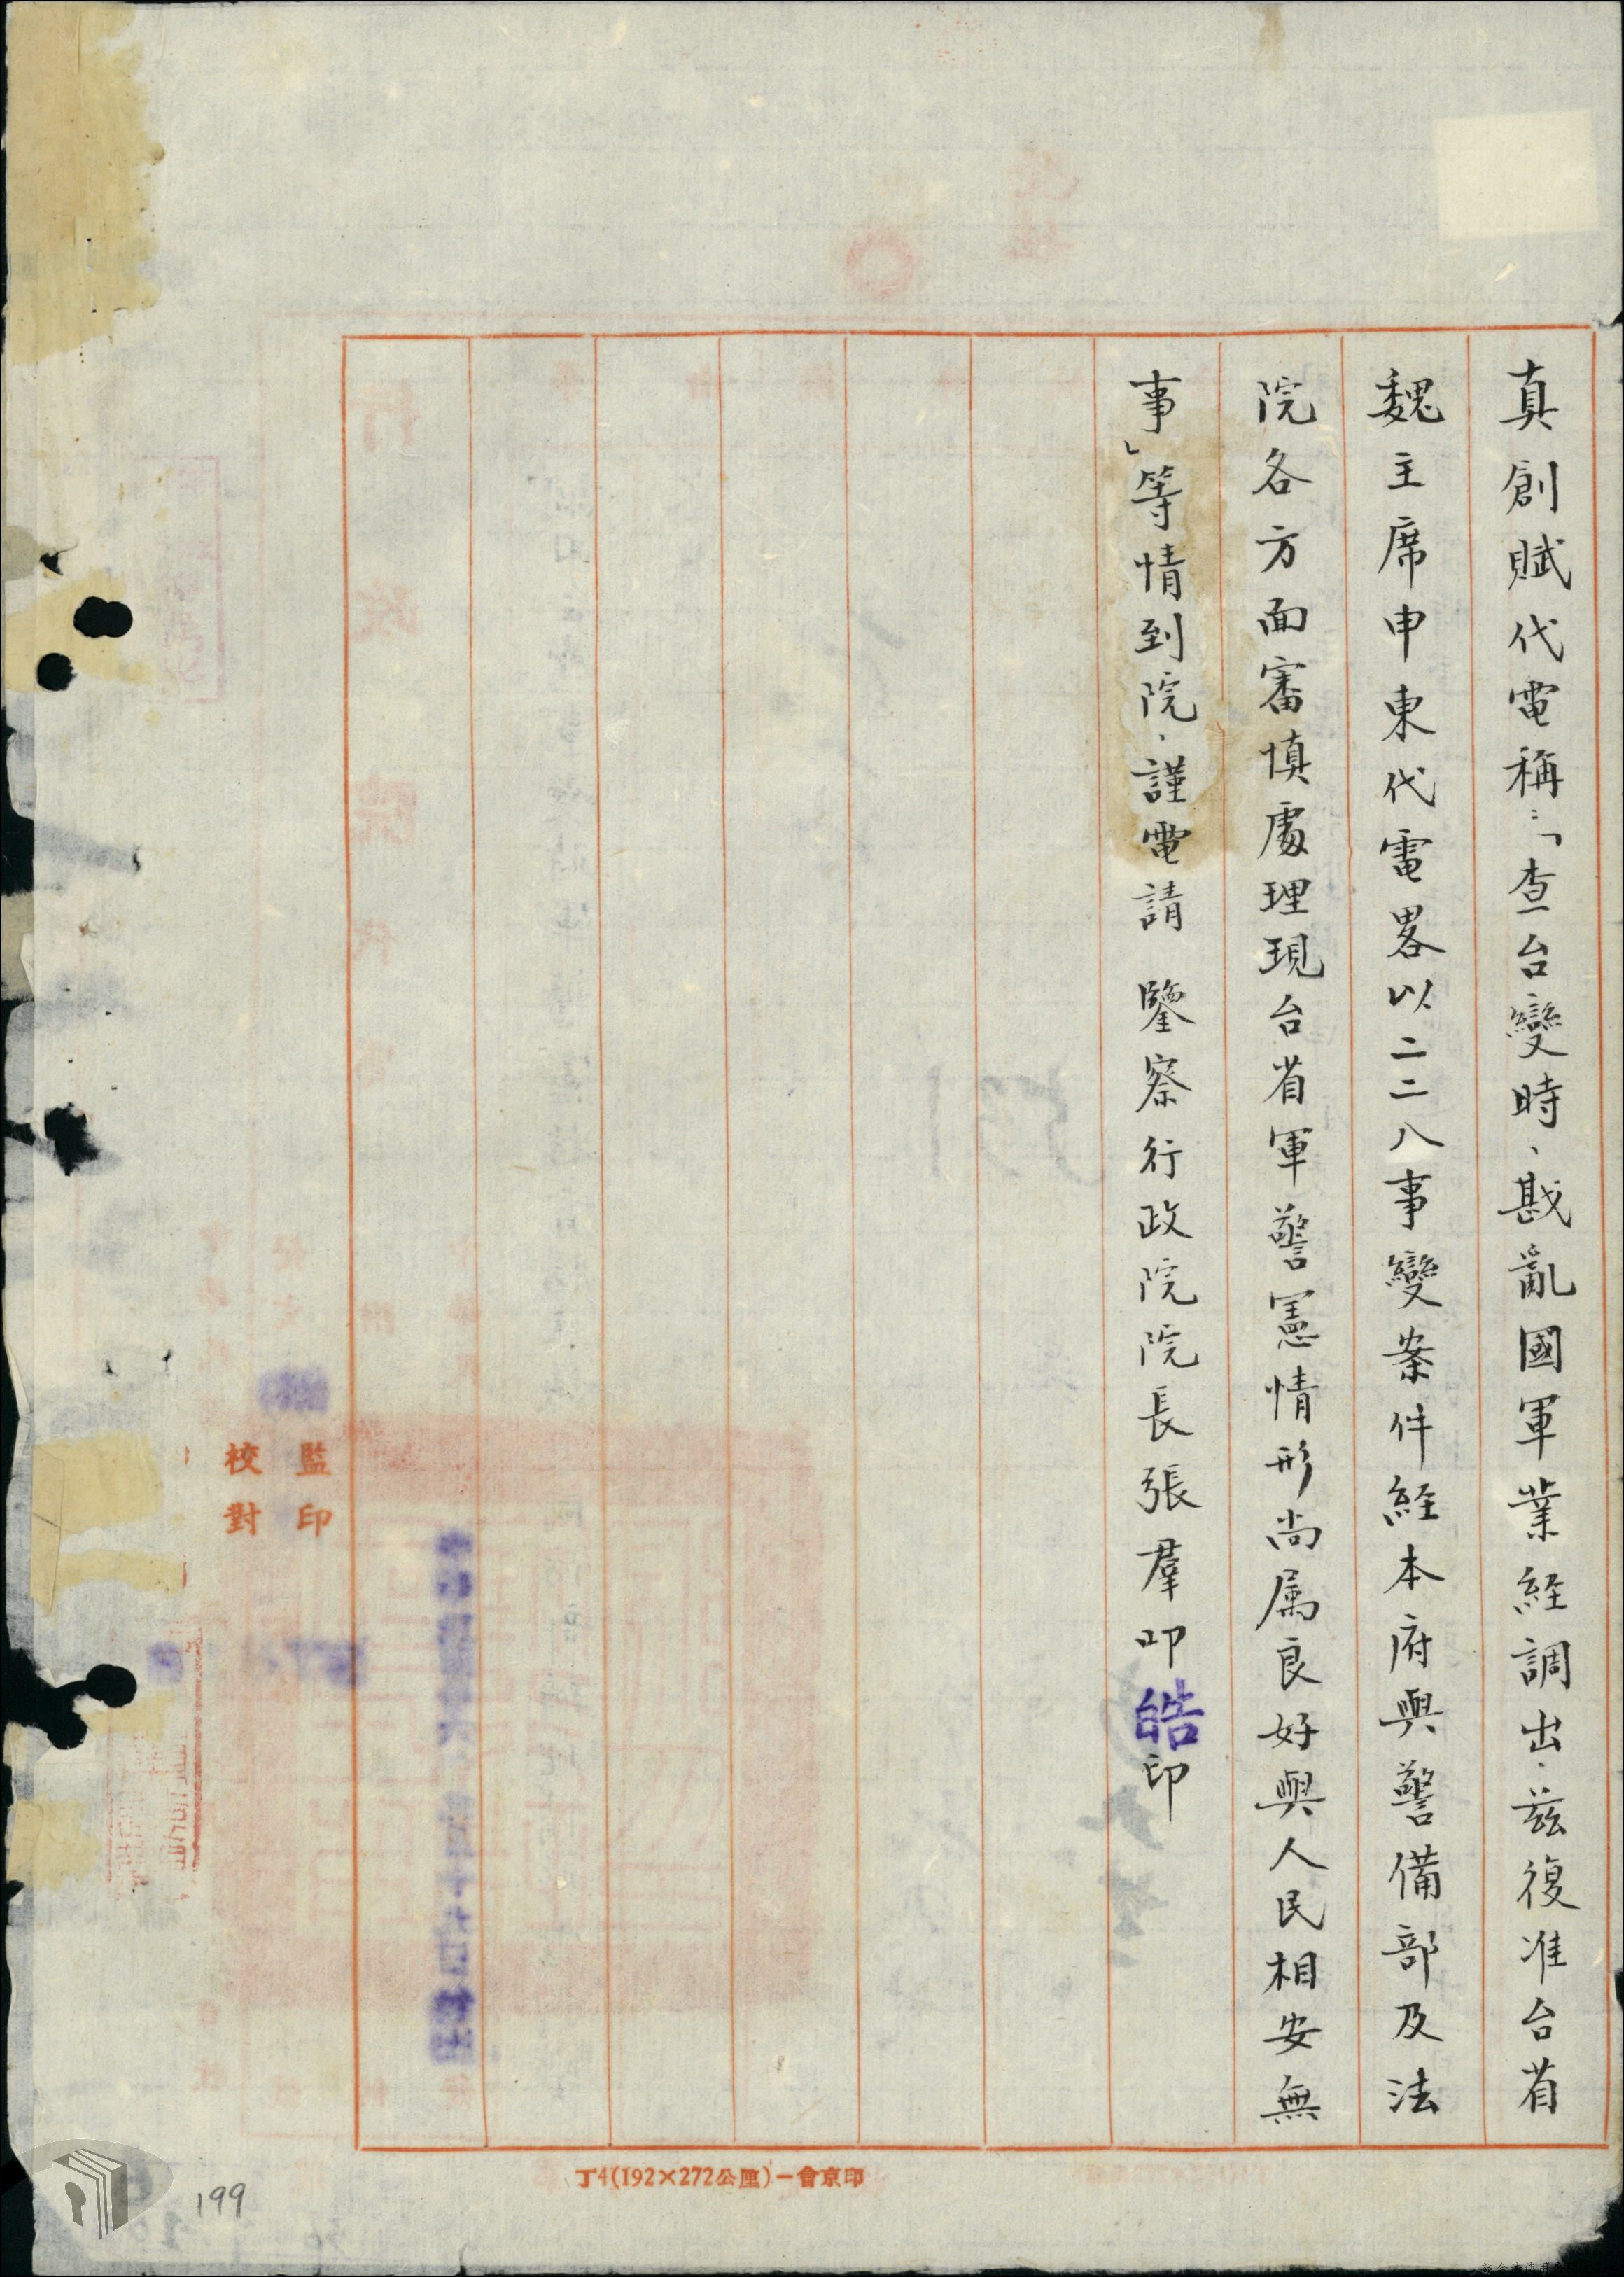 真創賦代電稱：「查台變時、戡亂國軍業經調出、茲復准台省
魏主席申東代電畧以二二八事變案件經本府與警備部及法
院各方面審慎處理現台省軍警憲情形尚属良好與人民相安無
事」等情到院、謹電請 鑒察行政院院長張羣叩皓印
監印
校對
丁4(192×272公厘)一會京印
199